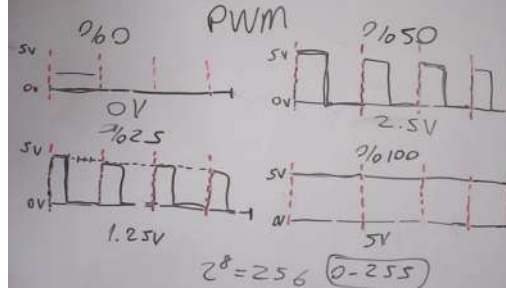 PWM
%0
5V
0V
0V
%50
5V
0V
2.5V
%25
5V
0V
1.25V
%100
5V
0V
5V
2⁸=256 0-255